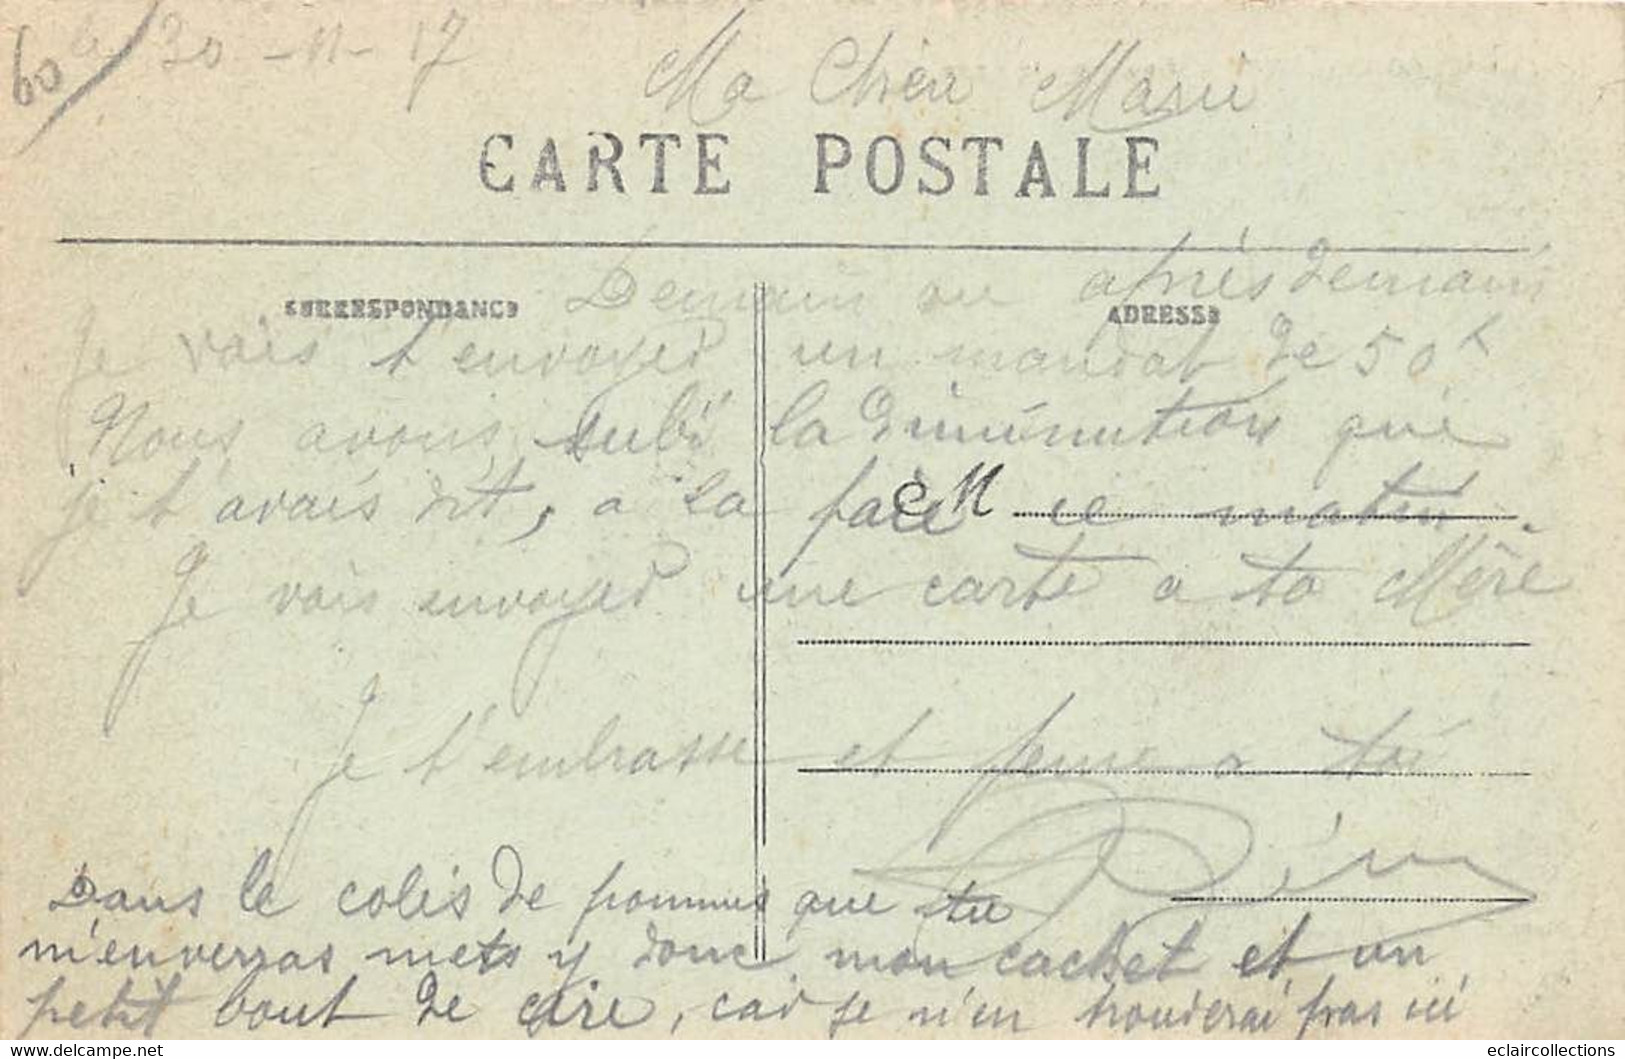 60 30-11-17
Ma Chère Marie
CARTE POSTALE
CORRESPONDANCE
ADRESSE
Demain ou après demain
Je vais t'envoyer un mandat de 50f
Nous avons subi la diminution que
je t'avais dit, a la ce matin.
Je vais envoyer une carte a ta Mère
Je t'embrasse et pense a toi
Dans le colis de pommes que tu
m'enverras mets y donc mon cachet et un
petit bout de cire, car je n'en trouverai pas ici
eclaircollections